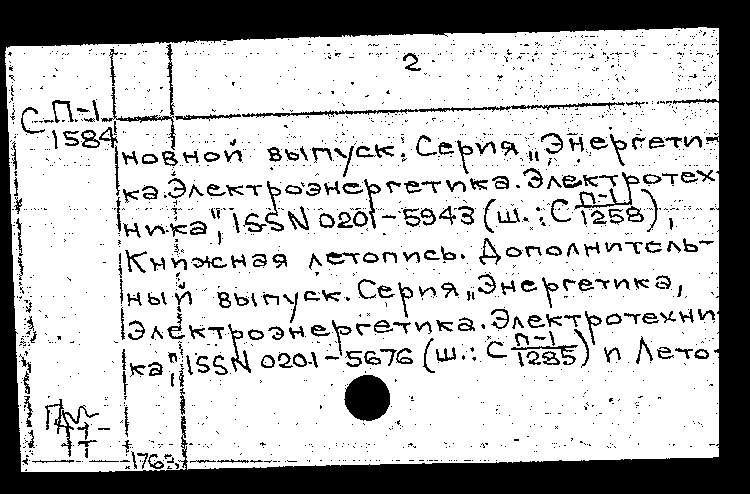 2
С П-1
1584
новной выпуск. Серия „Энергети-
ка. Электроэнергетика. Электротех-
ника", ISSN 0201-5943 (ш.: С П-1/1258),
Книжная летопись. Дополнитель-
ный выпуск. Серия „Энергетика,
Электроэнергетика. Электротехни-
ка", ISSN 0201-5676 (ш.: С П-1/1285) и Лето-